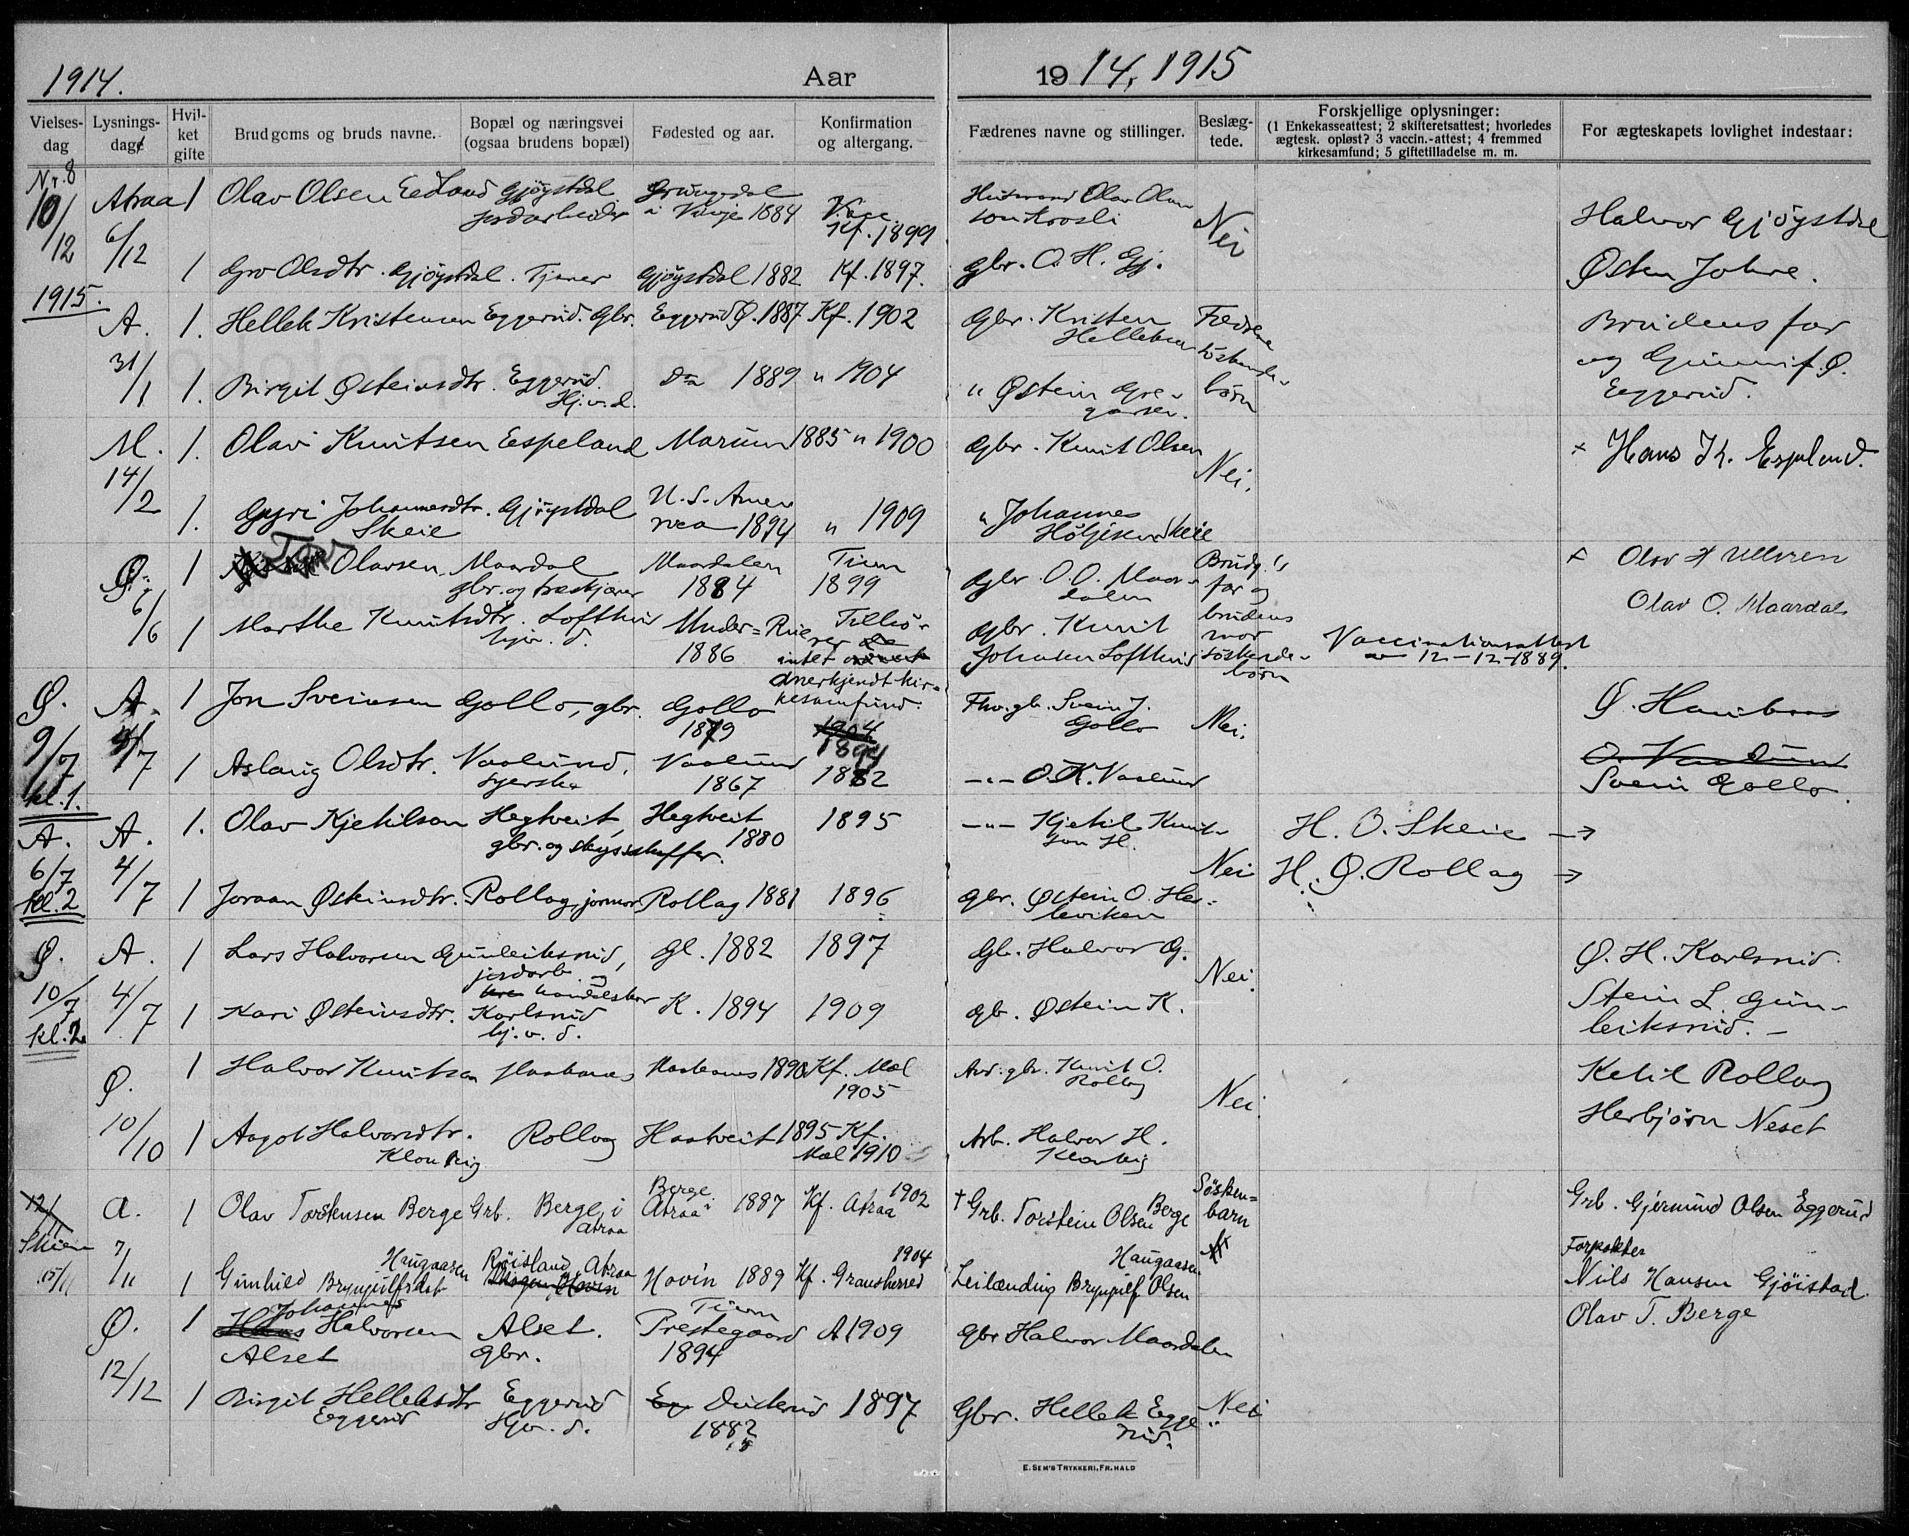 1914. Aar 1914, 1915
Vielses-dag | Lysnings-dag | Hvil-ket gifte | Brudgoms og bruds navne. | Bopæl og næringsvei (ogsaa brudens bopæl) | Fødested og aar. | Konfirmation og altergang. | Fædrenes navne og stillinger. | Beslæg-tede. | Forskjellige oplysninger: (1 Enkekasseattest; 2 skifteretsattest; hvorledes ægtesk. opløst? 3 vaccin.-attest; 4 fremmed kirkesamfund; 5 giftetilladelse m. m. | For ægteskapets lovlighet indestaar:
Nr. 8
10/12 Atraa 6/12 1 Olav Olsen Gjøystdal jordarbeider Grungedal i Vinje 1884 Kf. 1899 Olav Olsen Nei Halvor Gjøystdal
1 Gro Olsdtr. Gjøystdal. Tjener Gjøystdal 1882 Kf. 1897. gbr. O. H. Gj. Østen Johre.
1915.
A. 31/1 1. Hellek Kristensen Eggerud. Gbr. Eggerud Ø. 1887 Kf. 1902 Gbr. Kristen Helleksen Brudens far
1. Birgit Østeinsdtr. Eggerud. Hj.v.d. Do 1889 " 1904 " Østein Gregarsen. børn og Gunnuf Ø. Eggerud.
M. 14/2 1. Olav Knutsen Espeland Marum 1885 " 1900 Gbr. Knut Olsen Nei. × Hans K. Espelund.
1. Gyri Johannesdtr. Skeie Gjøystdal U. S. Amerca 1894 " 1909 " Johannes Skeie
Ø. 6/6 1 Olavsen Maardal gbr. og træskjærer Maardalen 1884 Tinn 1899 gbr O. O. Maardalen Brudg.s far og × Olav H Ullvren
1 Marthe Knutsdtr. Lofthus hjv. d. 1886 Tilhører intet anerkjendt kirkesamfund. Gbr. Knut Johnsen Lofthus brudens mor søskendebørn Vaccinationsattest av 12-12-1889. Olav O. Maardal
Ø. 9/7 kl. 1. A. 4/7 1 Jon Sveinsen Gollo, gbr. Gollo 1879 1904 1894 Fhv. gb. Svein J. Gollo Nei.
1 Aslaug Olsdtr. Vaalund, syerske Vaalund 1867 1882 —"— O. K. Vaalund Svein Gollo.
A. 6/7 kl. 2 A. 4/7 1. Olav Kjetilson Hegtveit, gbr. og skysskaffer. Hegtveit 1880 1895 —"— Kjetil Knutson H. H. O. Skeie →
1 Joraan Østeinsdtr. Rollag, jormor Rollag 1881 1896 gbr. Østein O. Herleviken Nei H. Ø. Rollag →
Ø. 10/7 kl. 2 A. 4/7 1 Lars Halvorsen Gunleiksrud, jordarb. Gl. 1882 1897 Gb. Halvor G. Nei. Ø. H. Karlsrud.
1 Kari Østeinsdtr. Karlsrud hj. v. d. K. 1894 1909 gb. Østein K. Stein L. Gunleiksrud. —
Ø. 10/10 1 Halvor Knutsen Haabanes Haabanes 1890 Kf. Mæl 1905 Knut O. Rollag Nei. Ketil Rollag
1 Aagot Halvorsdtr. Rollag Haatveit 1895 Kf. Mæl 1910 Arb. Halvor H. Herbjørn Neset
12/11 Skien 15/11 A. 7/11 1 Olav Torsteinsen Berge Grb. Berge i Atraa Berge Atraa 1887 Kf. Atraa 1902 † Grb. Torstein Olsen Berge Søskenbarn Grb. Gjermund Olsen Eggerud
1 Gunhild Brynjulfsdat. Haugaasen Røisland, Atraa Hovin 1889 Kf. Gransherred 1904 Leilænding Brynjulf Olsen Haugaasen Forpakter Niels Hansen Gjøistad
Ø. 12/12 1 Hans Johannes Halvorsen Alset Alset. gbr. Tinn Prestegaard 1894 A 1909 Gbr Halvor Maardalen Olav T. Berge
1 Birgit Helleksdtr Eggerud Eggerud Hjv. d. 1882 1897 Gbr. Hellek Eggerud. Nei
E. SEM'S TRYKKERI, FR. HALD